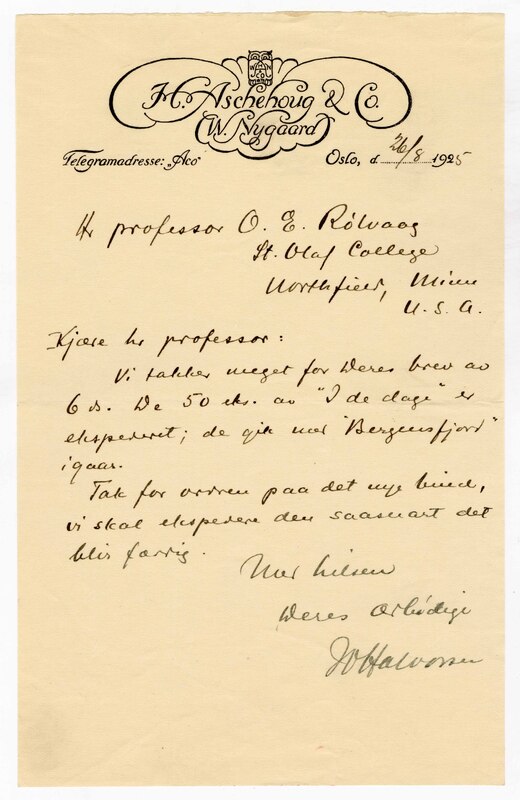 H. Aschehoug & Co.
(W. Nygaard)
Telegramadresse: „Aco"
Oslo, d 26/8 1925
Hr professor O. E. Rölvaag
St. Olaf College
Northfield, Minn
U. S. A.
Kjære hr professor:
Vi takker meget for Deres brev av
6 ds. De 50 eks. av "I de dage" er
ekspederet; de gik med "Bergensfjord"
igaar.
Tak for ordren paa det nye bind,
vi skal ekspedere den saasnart det
blir færdig.
Med hilsen
Deres ærbødige
Halvorsen